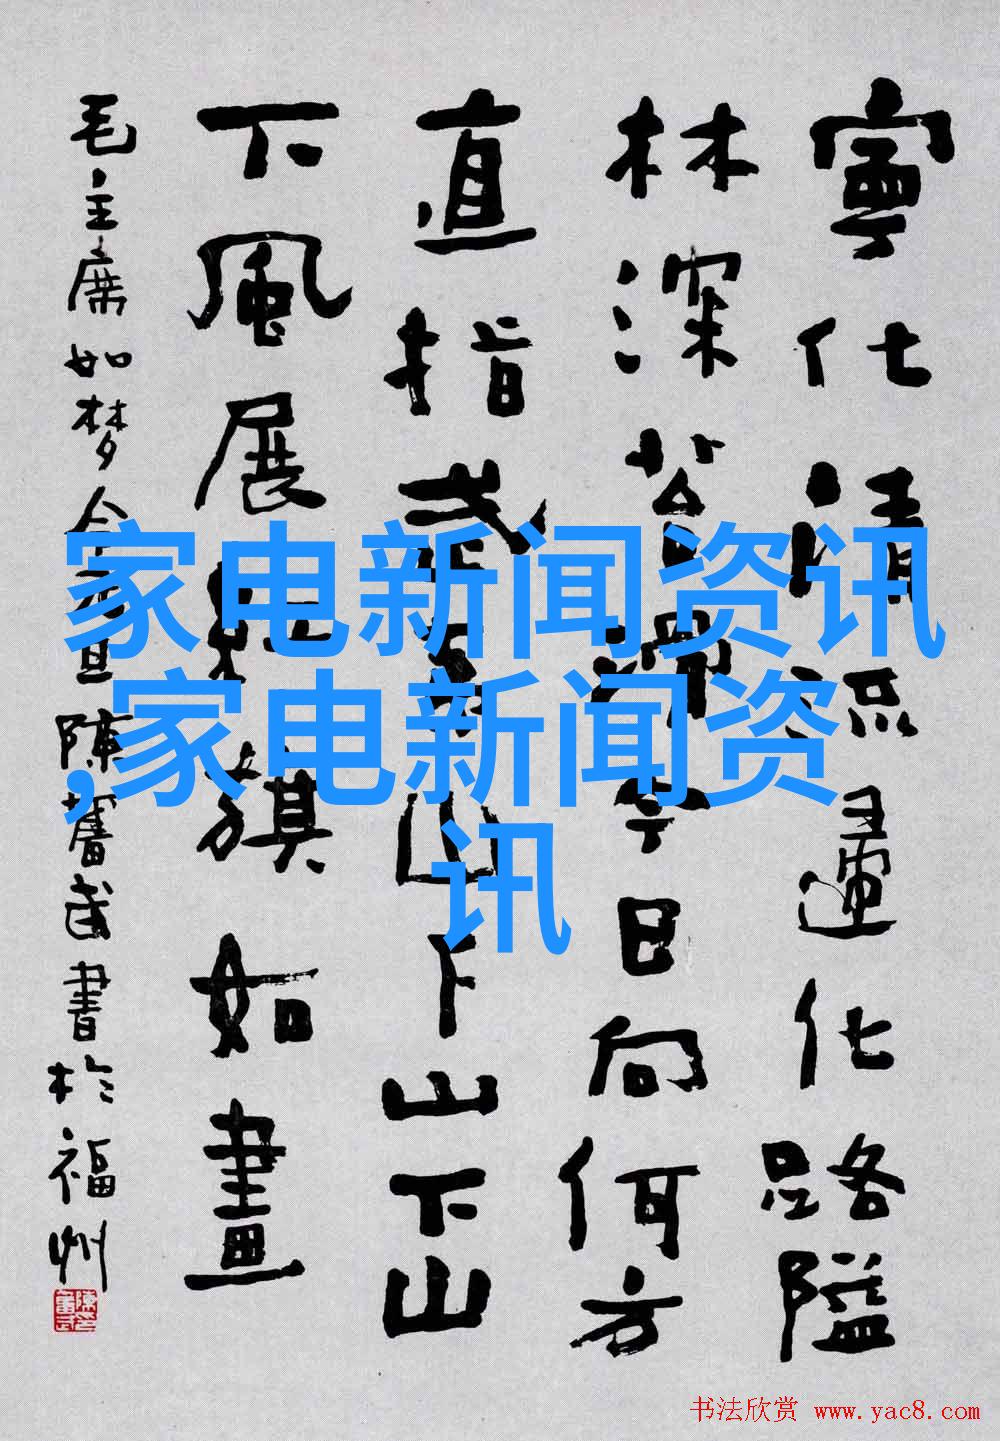 寧化清流歸化路隘
林深苔滑今日向何方
直指武夷山下山下山
下風展紅旗如畫
毛主席如梦令元旦陳奮武書於福州
家电新闻资讯
,家电新闻资
讯
书法欣赏 www.yac8.com